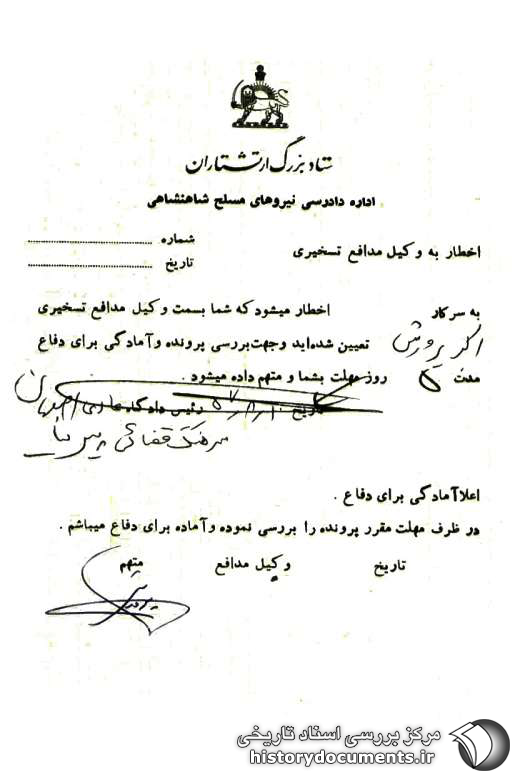 ستاد بزرگ ارتشتاران
اداره دادرسی نیروهای مسلح شاهنشاهی
اخطار به وکیل مدافع تسخیری
شماره
تاریخ
به سرکار اخطار میشود که شما بسمت وکیل مدافع تسخیری
اکبر پرورش تعیین شده‌اید وجهت بررسی پرونده وآمادگی برای دفاع
مدت ۵ روز مهلت بشما و متهم داده میشود .
تاریخ رئیس دادگاه عادی اصفهان
سرهنگ قضائی
اعلاآمادگی برای دفاع .
در ظرف مهلت مقرر پرونده را بررسی نموده وآماده برای دفاع میباشم .
تاریخ وکیل مدافع متهم
مرکز بررسی اسناد تاریخی
historydocuments.ir